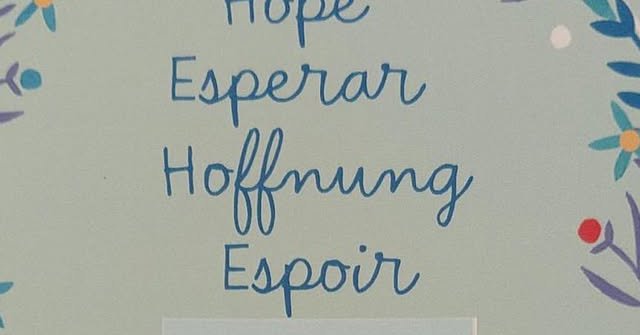 Hope
Esperar
Hoffnung
Espoir